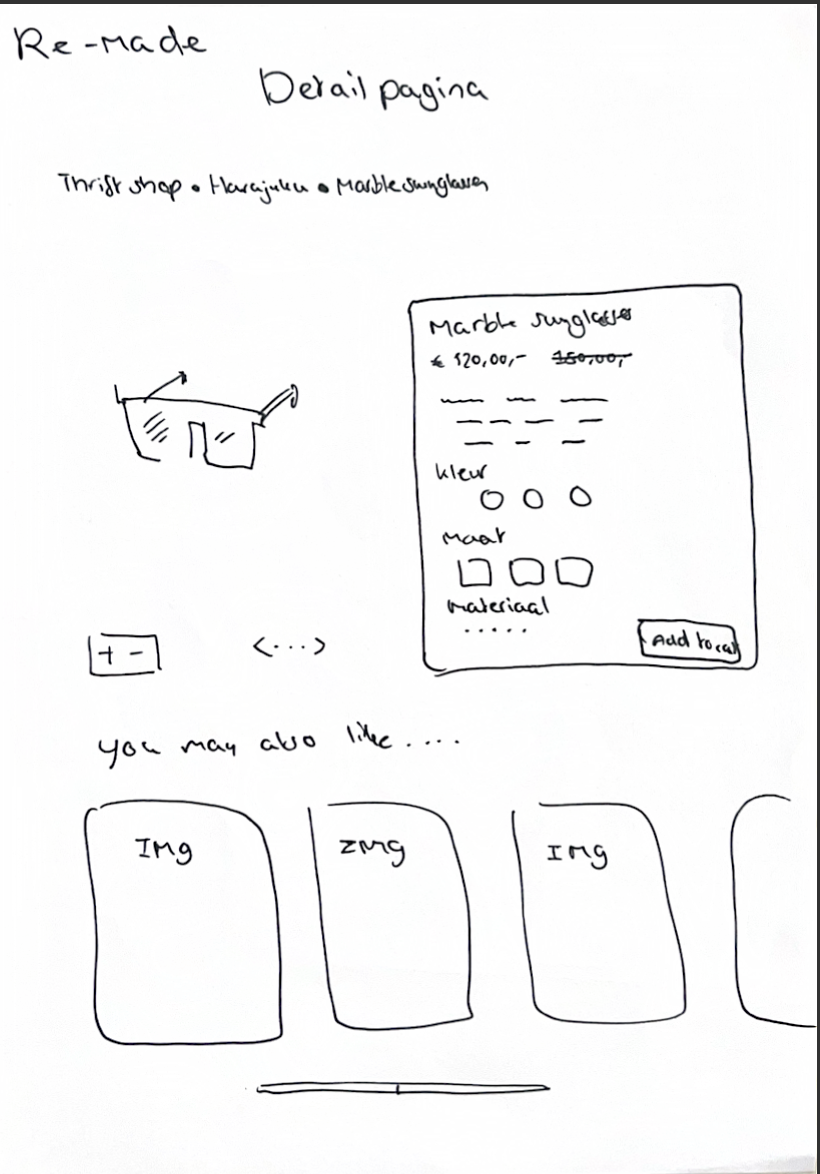 Re-made
Detail pagina
Thrift shop • Harajuku • Marble sunglasses
Marble sunglasses
€ 120,00,- 150,00,-
kleur
Maat
Materiaal
.....
Add to cart
+ -
<...>
you may also like....
IMg
IMg
IMg